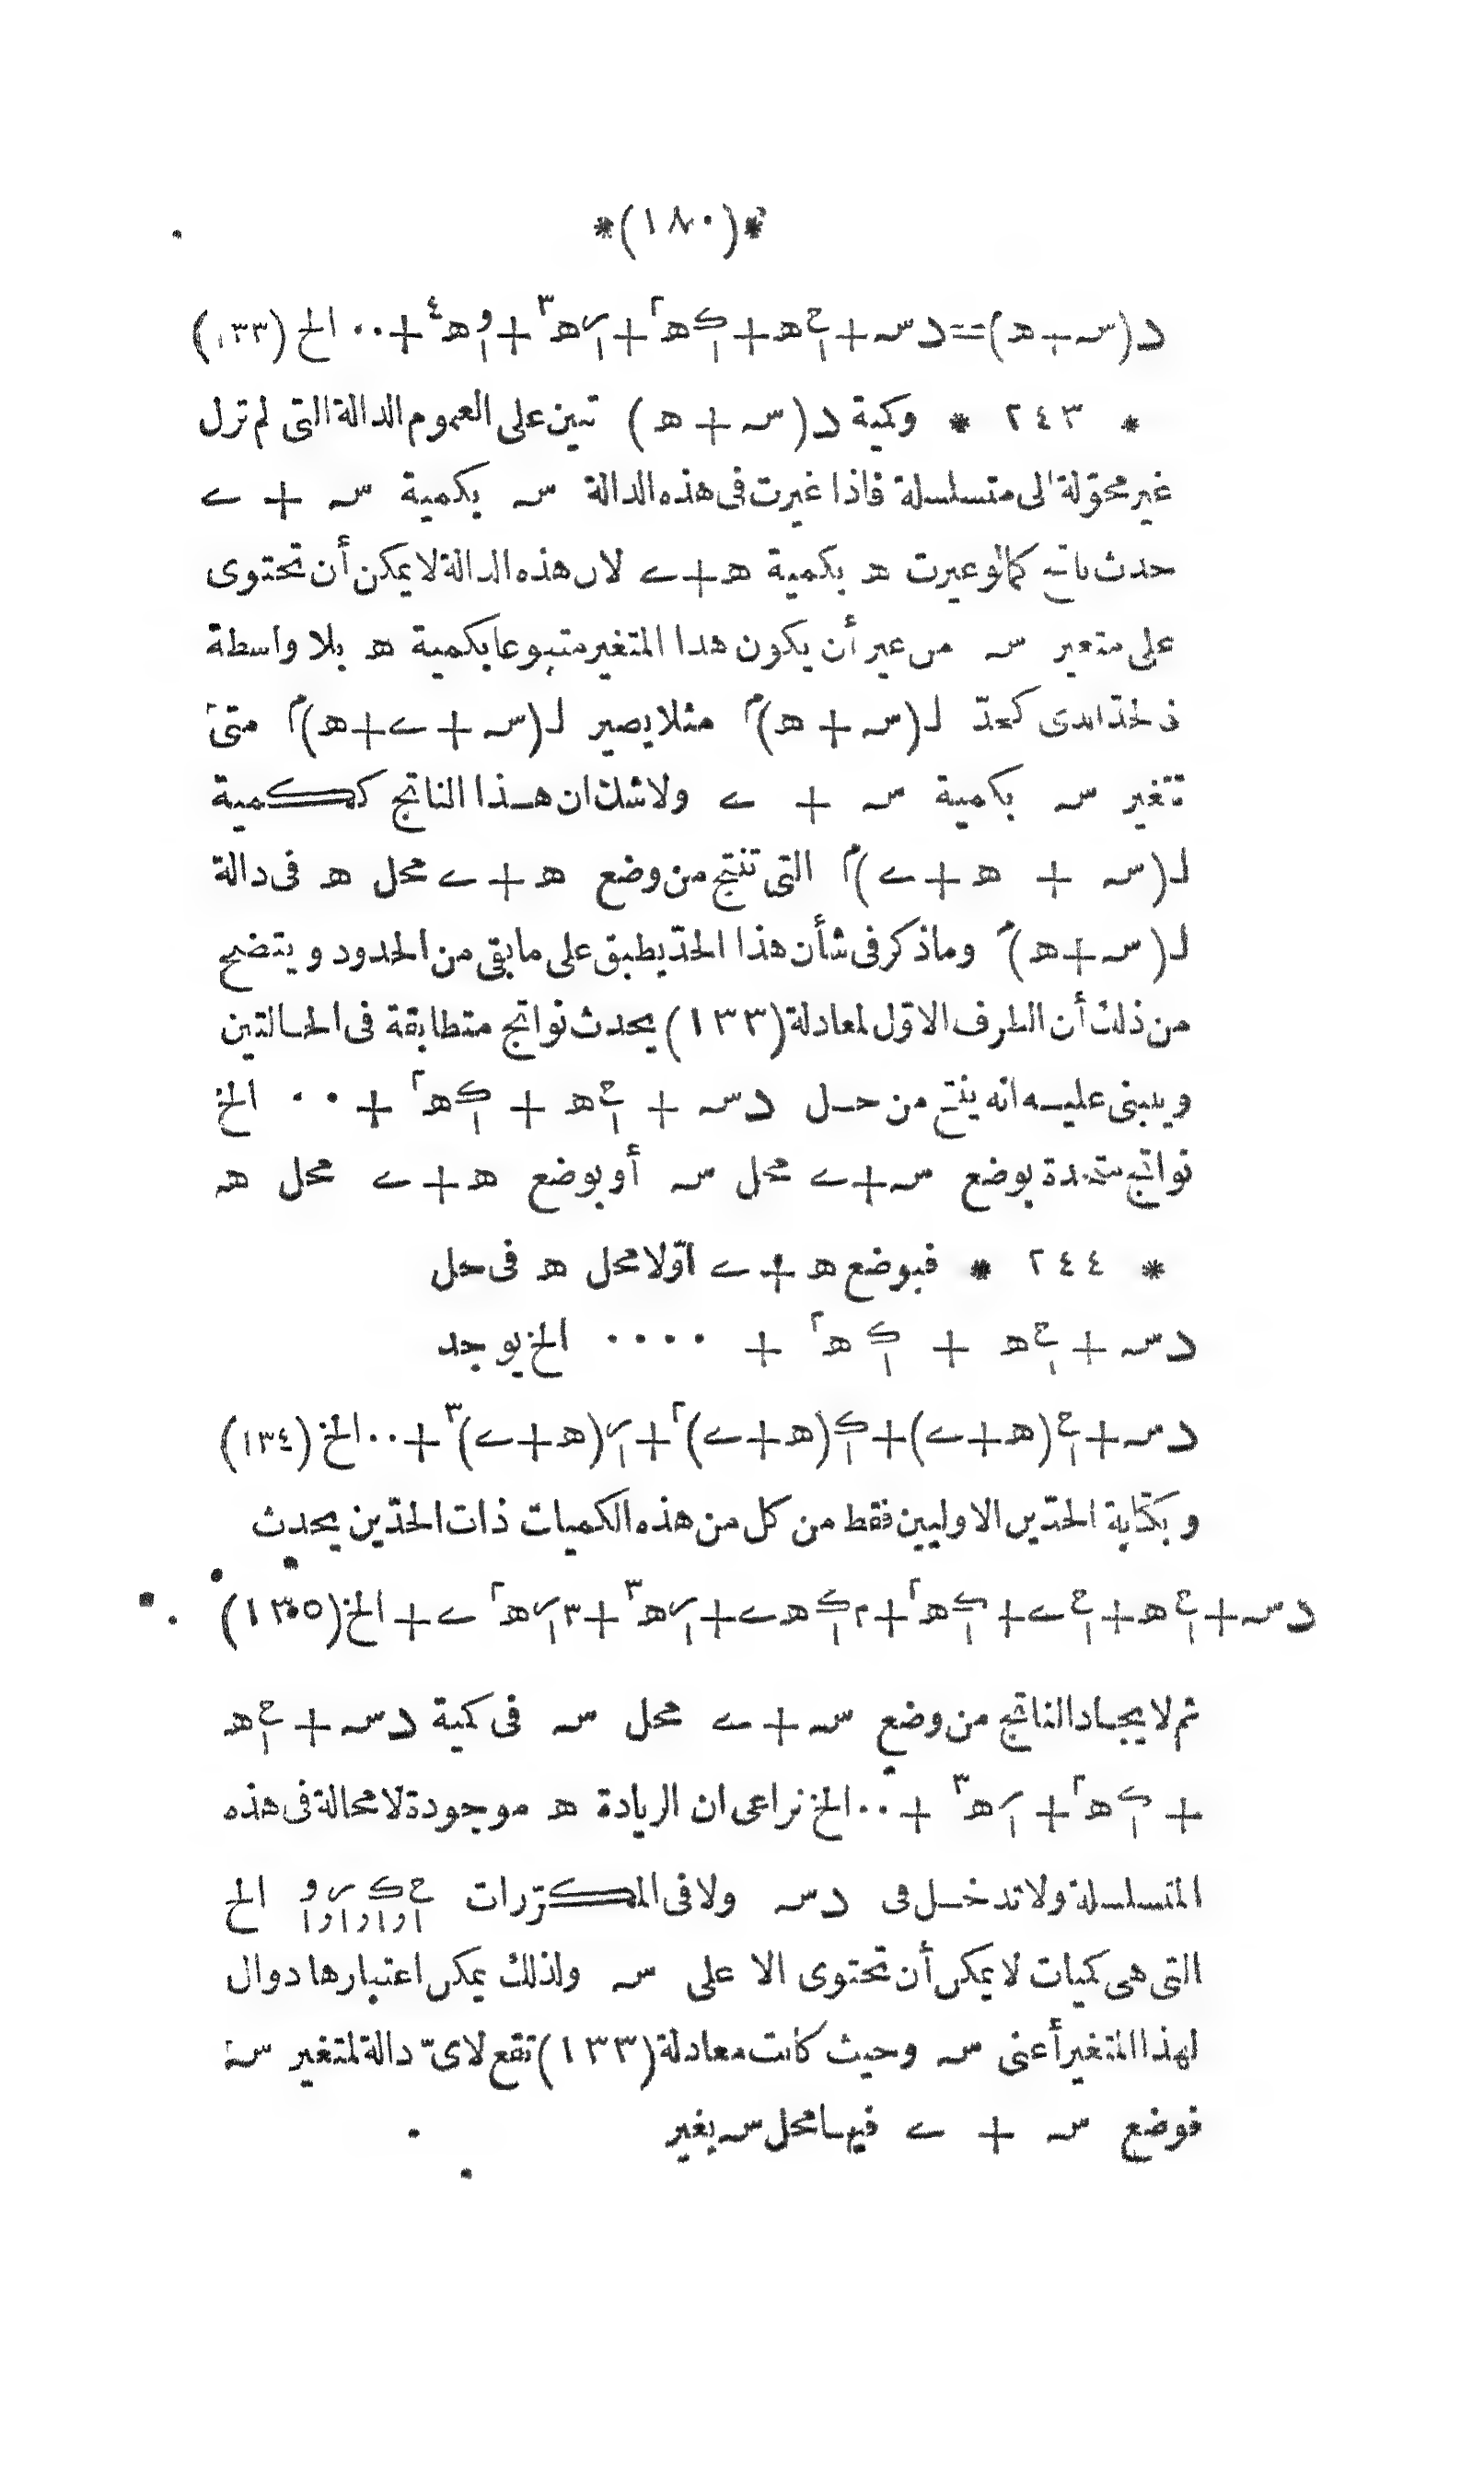 *(١٨٠)*
د(سـ+هـ)=دسـ+ع١هـ+ك١هـ٢+ر١هـ٣+و١هـ٤+٠٠الخ(١٣٣)
* ٢٤٣ * وكمية د(سـ+هـ) تبين على العموم الدالة التى لم تزل
غير محوّلة الى متسلسلة فاذا غيرت فى هذه الدالة سـ بكمية سـ + ے
حدث ناتج كمالو غيرت هـ بكمية هـ+ے لان هذه الدالة لا يمكن أن تحتوى
على متغير سـ من غير أن يكون هذا المتغير متبوعا بكمية هـ بلا واسطة
فالحدّ الذى كحدّ لـ(سـ + هـ)م مثلا يصير لـ(سـ+ے+هـ)م متى
تتغير سـ بكمية سـ + ے ولا شك ان هـذا الناتج ككمية
لـ(سـ + هـ+ے)م التى تنتج من وضع هـ+ے محل هـ فى دالة
لـ(سـ+هـ)م وما ذكر فى شأن هذا الحدّ يطبق على ما بقى من الحدود ويتضح
من ذلك أن الطرف الاوّل لمعادلة (١٣٣) يحدث نواتج متطابقة فى الحـالتين
وينبنى عليـه انه ينتج من حـل دسـ + ع١هـ + ك١هـ٢ + ٠٠ الخ
نواتج متحدة بوضع سـ+ے محل سـ أو بوضع هـ+ے محل هـ
* ٢٤٤ * فبوضع هـ+ے اوّلا محل هـ فى حل
دسـ+ع١هـ + ك١هـ٢ + ٠٠٠٠ الخ يوجد
دسـ+ع١(هـ+ے)+ك١(هـ+ے)٢+ر١(هـ+ے)٣+٠٠الخ(١٣٤)
وبكتابة الحدّين الاوليين فقط من كل من هذه الكميات ذات الحدّين يحدث
دسـ+ع١هـ+ع١ے+ك١هـ٢+٢ك١هـے+ر١هـ٣+٣ر١هـ٢ے+الخ(١٣٥)
ثم لايجـاد الناتج من وضع سـ+ے محل سـ فى كمية دسـ+ع١هـ
+ك١هـ٢+ر١هـ٣ +٠٠الخ نراعى ان الزيادة هـ موجودة لا محالة فى هذه
المتسلسلة ولا تدخـل فى دسـ ولا فى المكرّرات ع١وك١ور١وو١ الخ
التى هى كميات لا يمكن أن تحتوى الا على سـ ولذلك يمكن اعتبارها دوال
لهذا المتغير أعنى سـ وحيث كانت معادلة (١٣٣) تقع لاىّ دالة لمتغير سـ
فوضع سـ + ے فيهـا محل سـ بغير